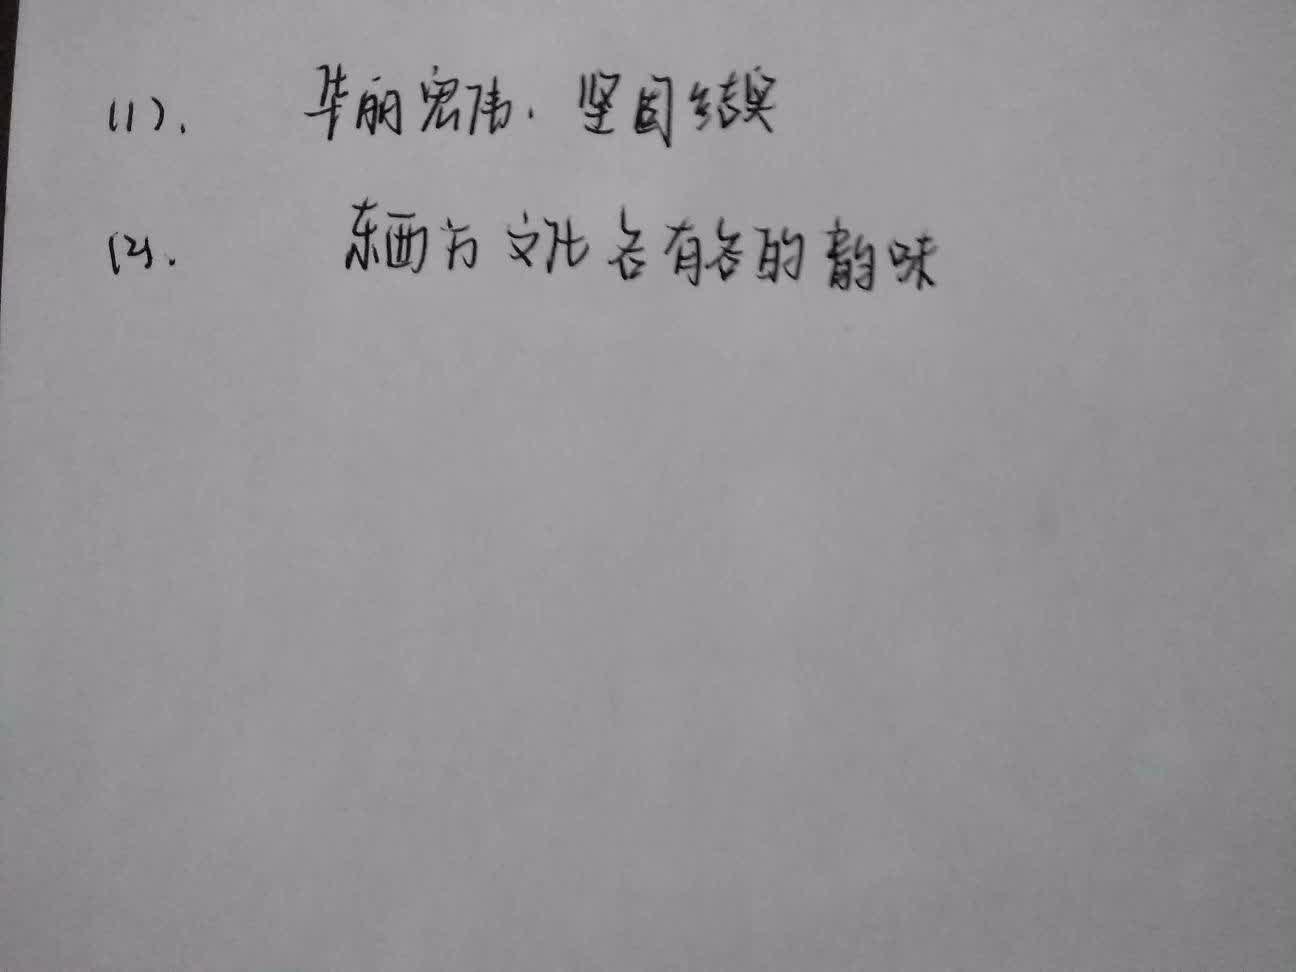 (1). 华丽宏伟. 坚固结实
(2). 东西方文化各有各的韵味